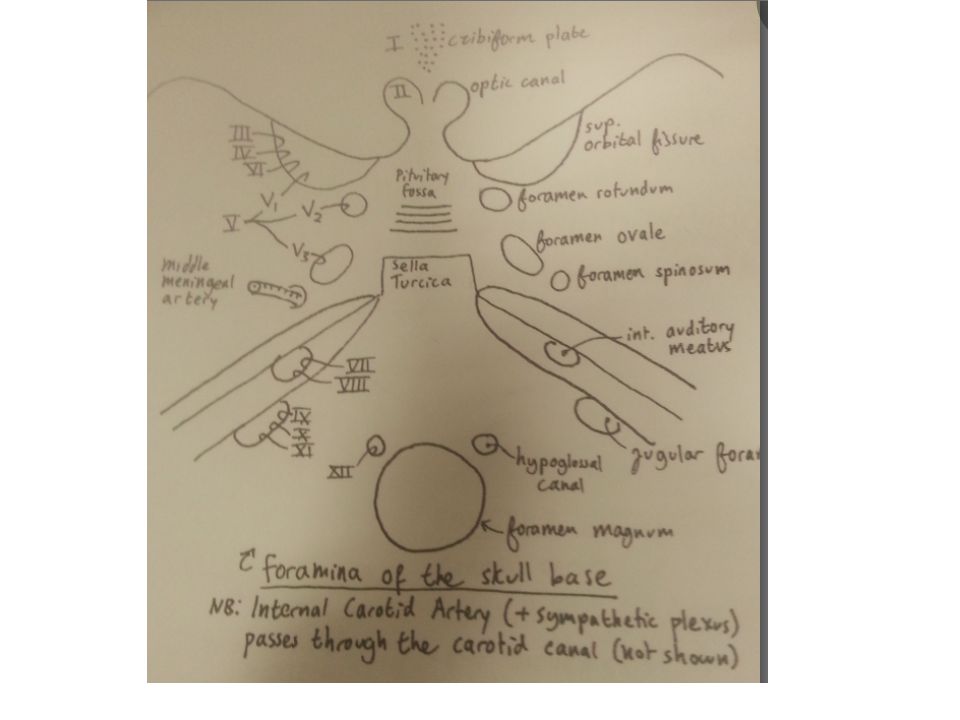 I cribiform plate
II optic canal
III
IV
VI
sup.
orbital fissure
Pituitary
fossa
V
V₁
V₂
V₃
foramen rotundum
foramen ovale
foramen spinosum
middle
meningeal
artery
Sella
Turcica
int. auditory
meatus
VII
VIII
IX
X
XI
XII
hypoglossal
canal
jugular foram
foramen magnum
foramina of the skull base
NB: Internal Carotid Artery (+ sympathetic plexus)
passes through the carotid canal (not shown)